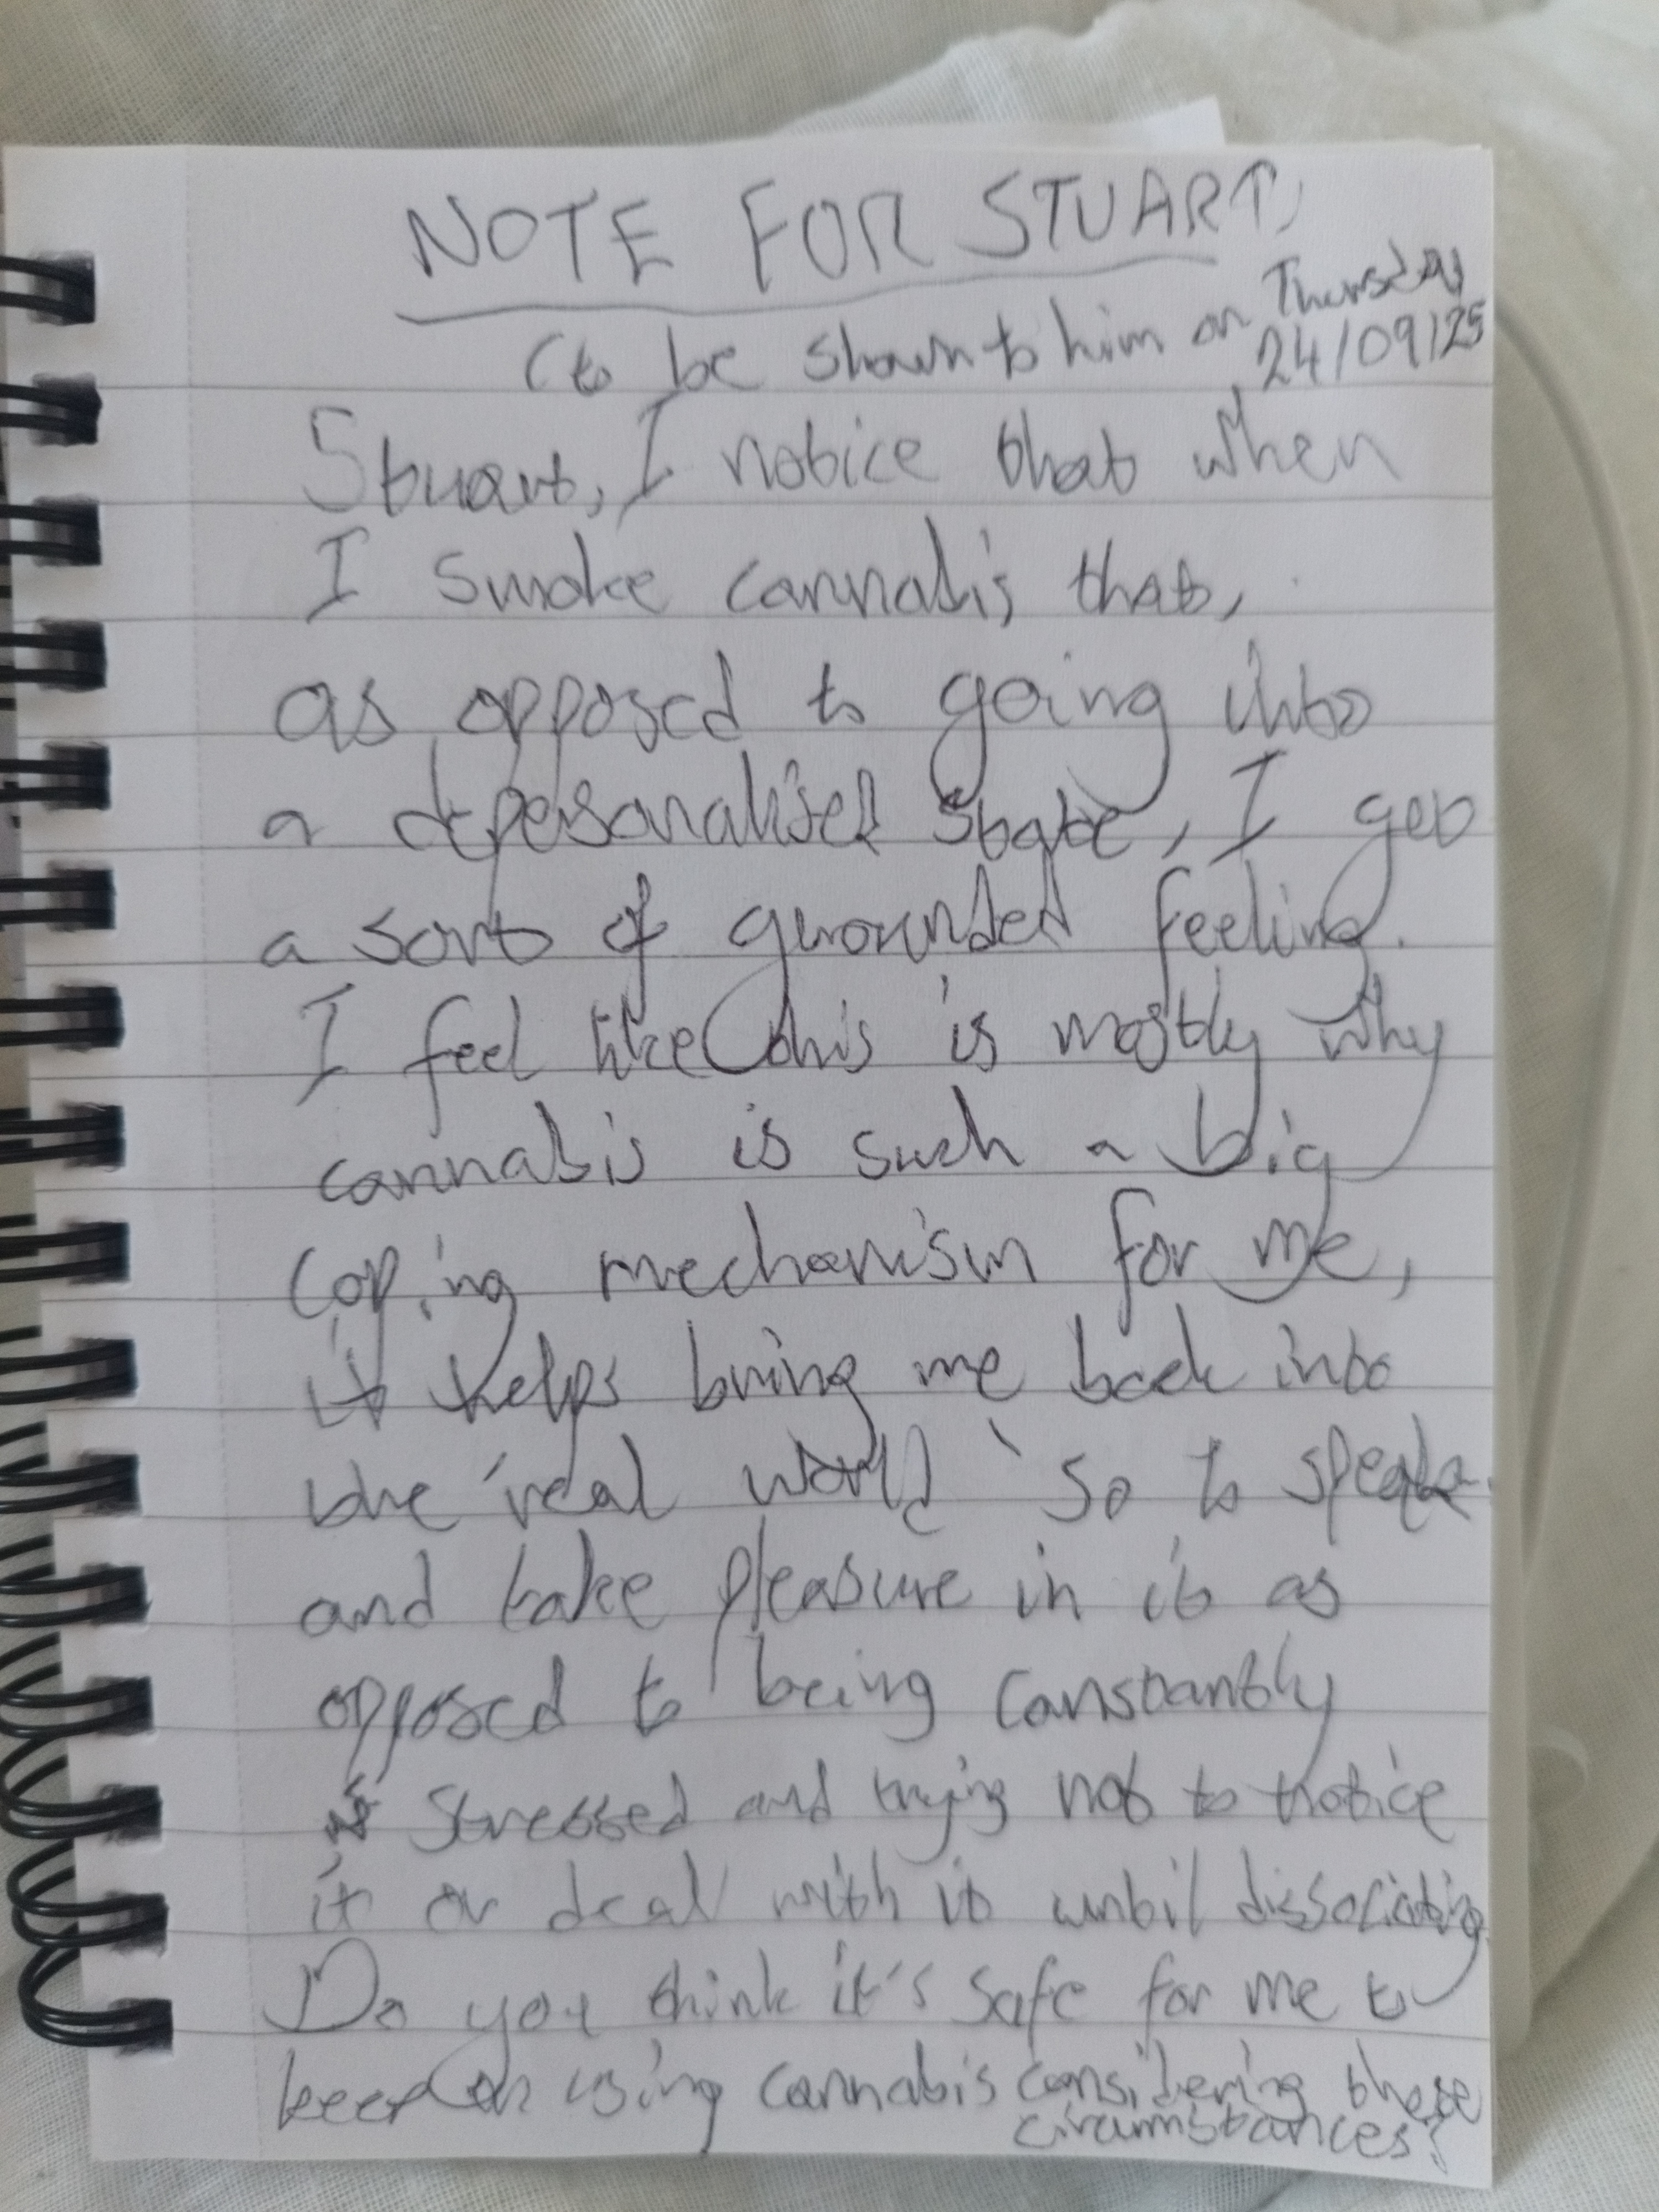 NOTE FOR STUART,
(to be shown to him on Thursday
24/09/25
Stuart, I notice that when
I smoke cannabis that,
as opposed to going into
a depersonalised state, I get
a sort of grounded feeling.
I feel like this is mostly why
cannabis is such a big
coping mechanism for me,
it helps bring me back into
the 'real world' so to speak
and take pleasure in it as
opposed to being constantly
stressed and trying not to notice
it or deal with it until dissociating.
Do you think it's safe for me to
keep on using cannabis considering these
circumstances?